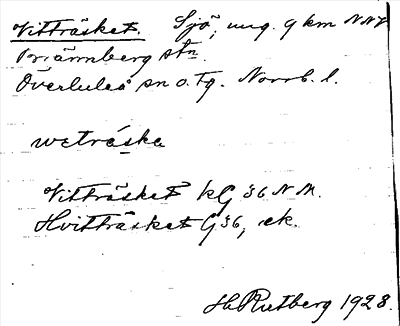 Vitträsket. Sjö, ung. 9 km NNV
Brännberg stn.
Överluleå sn o. tg. Norrb. l.
wetráska
Vitträsket kG 36 NM.
Hvitträsket G 36, ek.
H. Rutberg 1928.